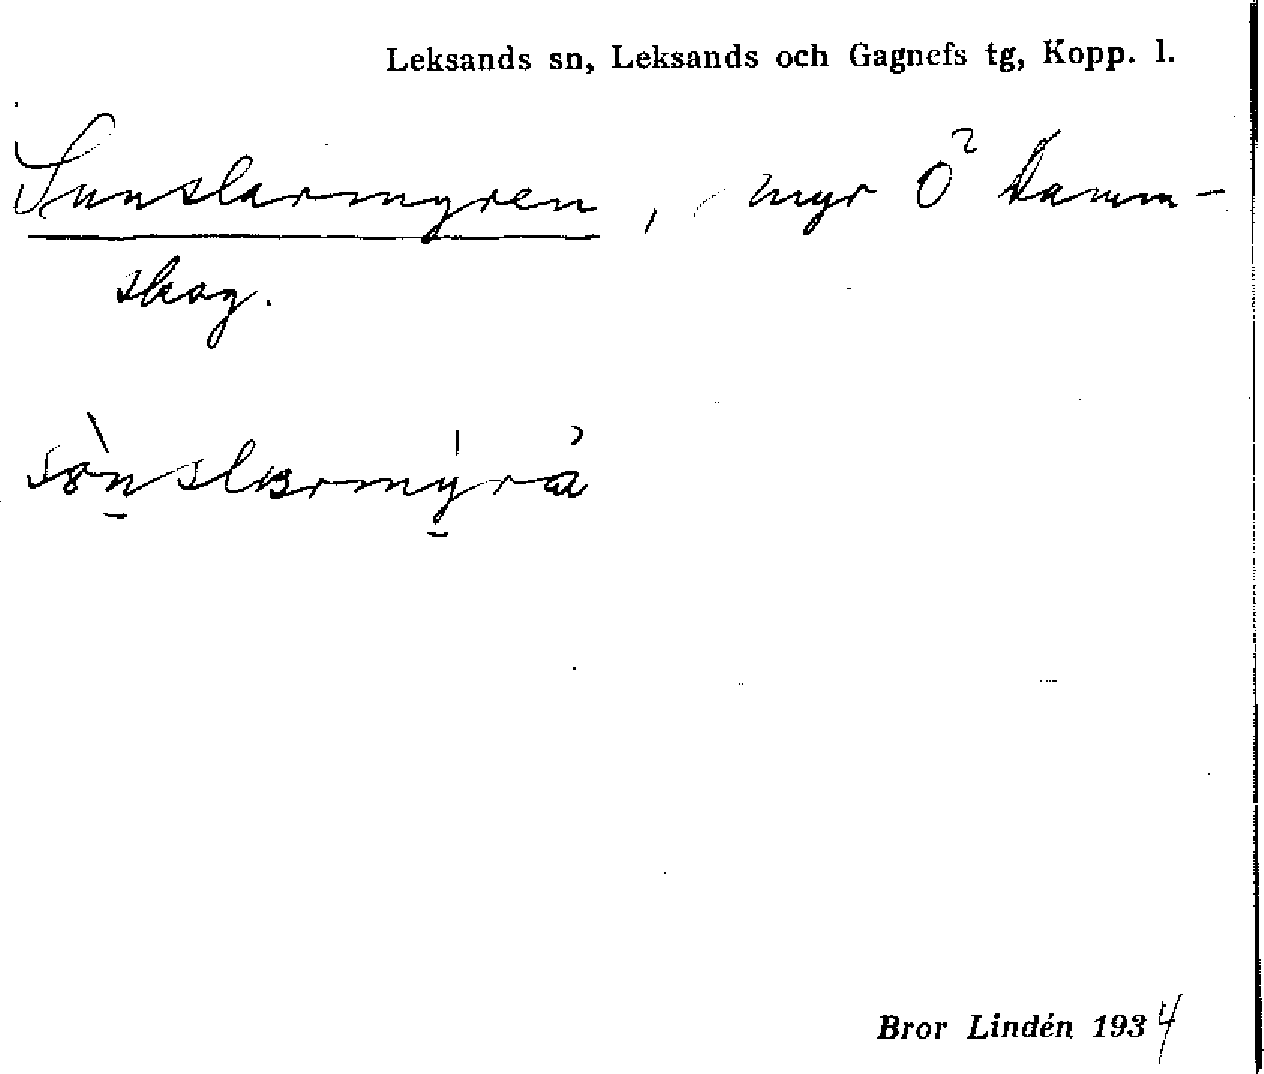 Leksands sn, Leksands och Gagnefs tg, Kopp. l.
Sunslarmyren, myr Ö² Hamm-
skog.
sönslarmýrå
Bror Lindén 1934